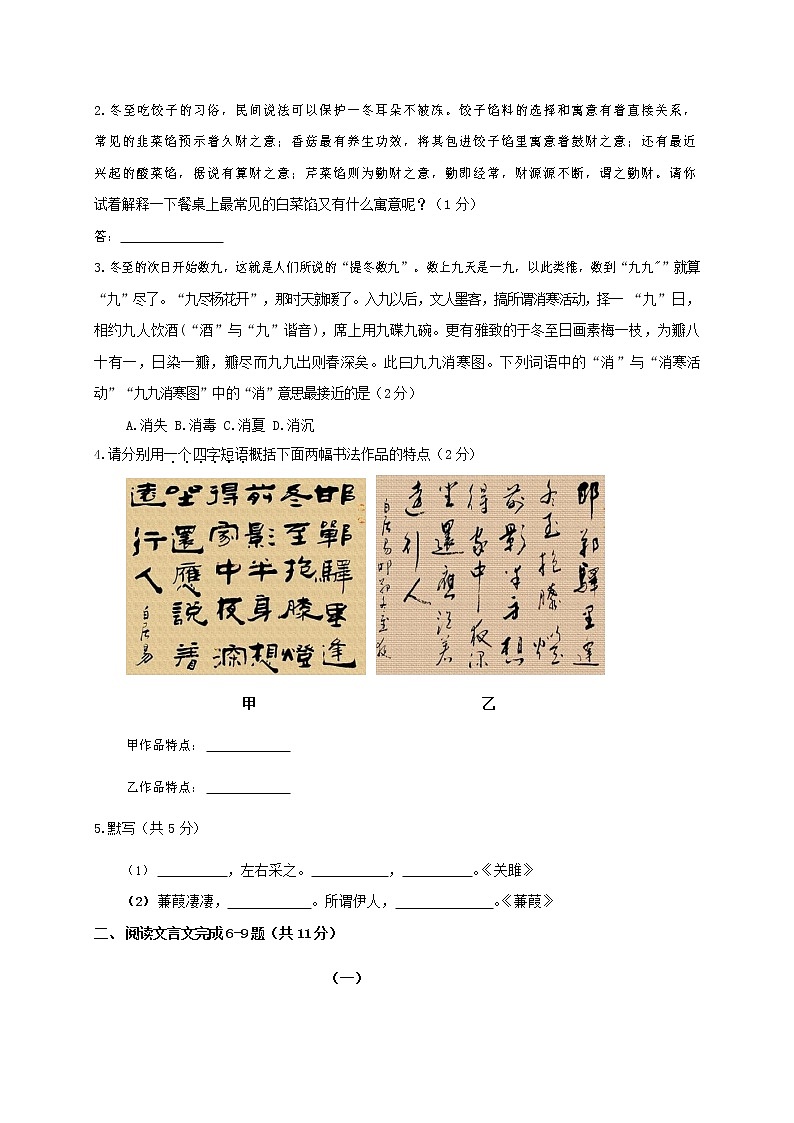 2.冬至吃饺子的习俗，民间说法可以保护一冬耳朵不被冻。饺子馅料的选择和寓意有着直接关系，
常见的韭菜馅预示着久财之意；香菇最有养生功效，将其包进饺子馅里寓意着鼓财之意；还有最近
兴起的酸菜馅，据说有算财之意；芹菜馅则为勤财之意，勤即经常，财源源不断，谓之勤财。请你
试着解释一下餐桌上最常见的白菜馅又有什么寓意呢？（1 分）
答：
3.冬至的次日开始数九，这就是人们所说的“提冬数九”。数上九天是一九，以此类推，数到“九九”” 就算
“九”尽了。“九尽杨花开”，那时天就暖了。入九以后，文人墨客，搞所谓消寒活动，择一 “九”日，
相约九人饮酒(“酒”与“九”谐音)，席上用九碟九碗。更有雅致的于冬至日画素梅一枝，为瓣八
十有一，日染一瓣，瓣尽而九九出则春深矣。此曰九九消寒图。下列词语中的“消”与“消寒活
动”“九九消寒图”中的“消”意思最接近的是（2 分）
A.消失 B.消毒 C.消夏 D.消沉
4.请分别用一个四字短语概括下面两幅书法作品的特点（2 分）
邯鄲驛里逢
冬至抱膝燈
前影半身想
得家中夜深
坐還應說著
遠行人
白居易
邯鄲驛里逢
冬至抱膝燈
前影半身想
得家中夜深
坐還應說著
遠行人
白居易邯鄲冬至夜
甲
乙
甲作品特点：
乙作品特点：
5.默写（共 5 分）
（1） ，左右采之。 ， 。《关雎》
（2）蒹葭凄凄， 。所谓伊人， 。《蒹葭》
二、阅读文言文完成 6-9 题（共 11 分）
（一）